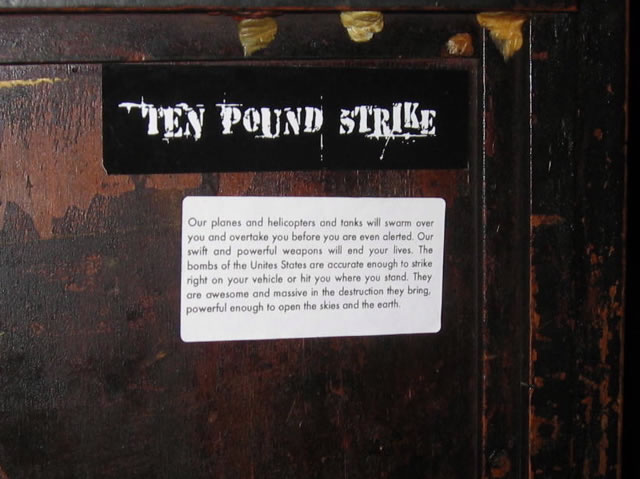 TEN POUND STRIKE
Our planes and helicopters and tanks will swarm over
you and overtake you before you are even alerted. Our
swift and powerful weapons will end your lives. The
bombs of the Unites States are accurate enough to strike
right on your vehicle or hit you where you stand. They
are awesome and massive in the destruction they bring,
powerful enough to open the skies and the earth.